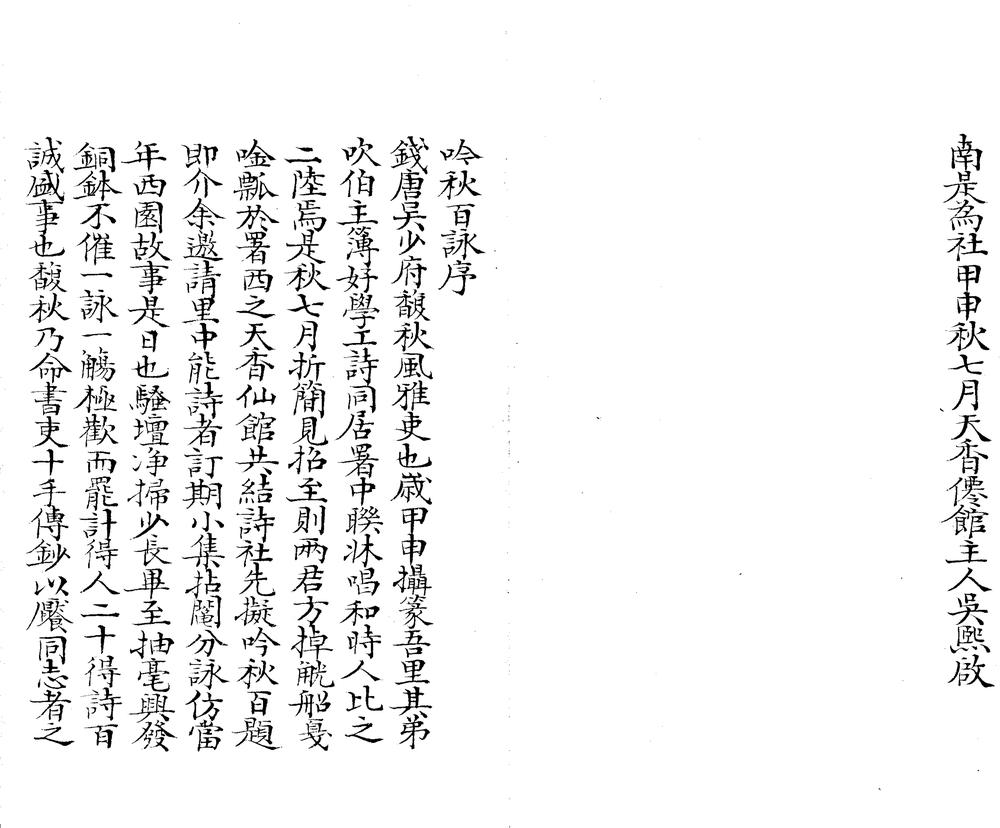 南是為社甲申秋七月天香僊館主人吳熙啟
吟秋百詠序
錢唐吳少府馥秋風雅吏也嵗甲申攝篆吾里其弟
吹伯主簿好學工詩同居署中聯牀唱和時人比之
二陸焉是秋七月折簡見招至則兩君方掉觥船戛
唫瓢於署西之天香仙館共結詩社先擬吟秋百題
即介余邀請里中能詩者訂期小集拈鬮分詠仿當
年西園故事是日也騷壇净掃少長畢至抽毫興發
銅鉢不催一詠一觴極歡而罷計得人二十得詩百
誠盛事也馥秋乃命書吏十手傳鈔以饜同志者之